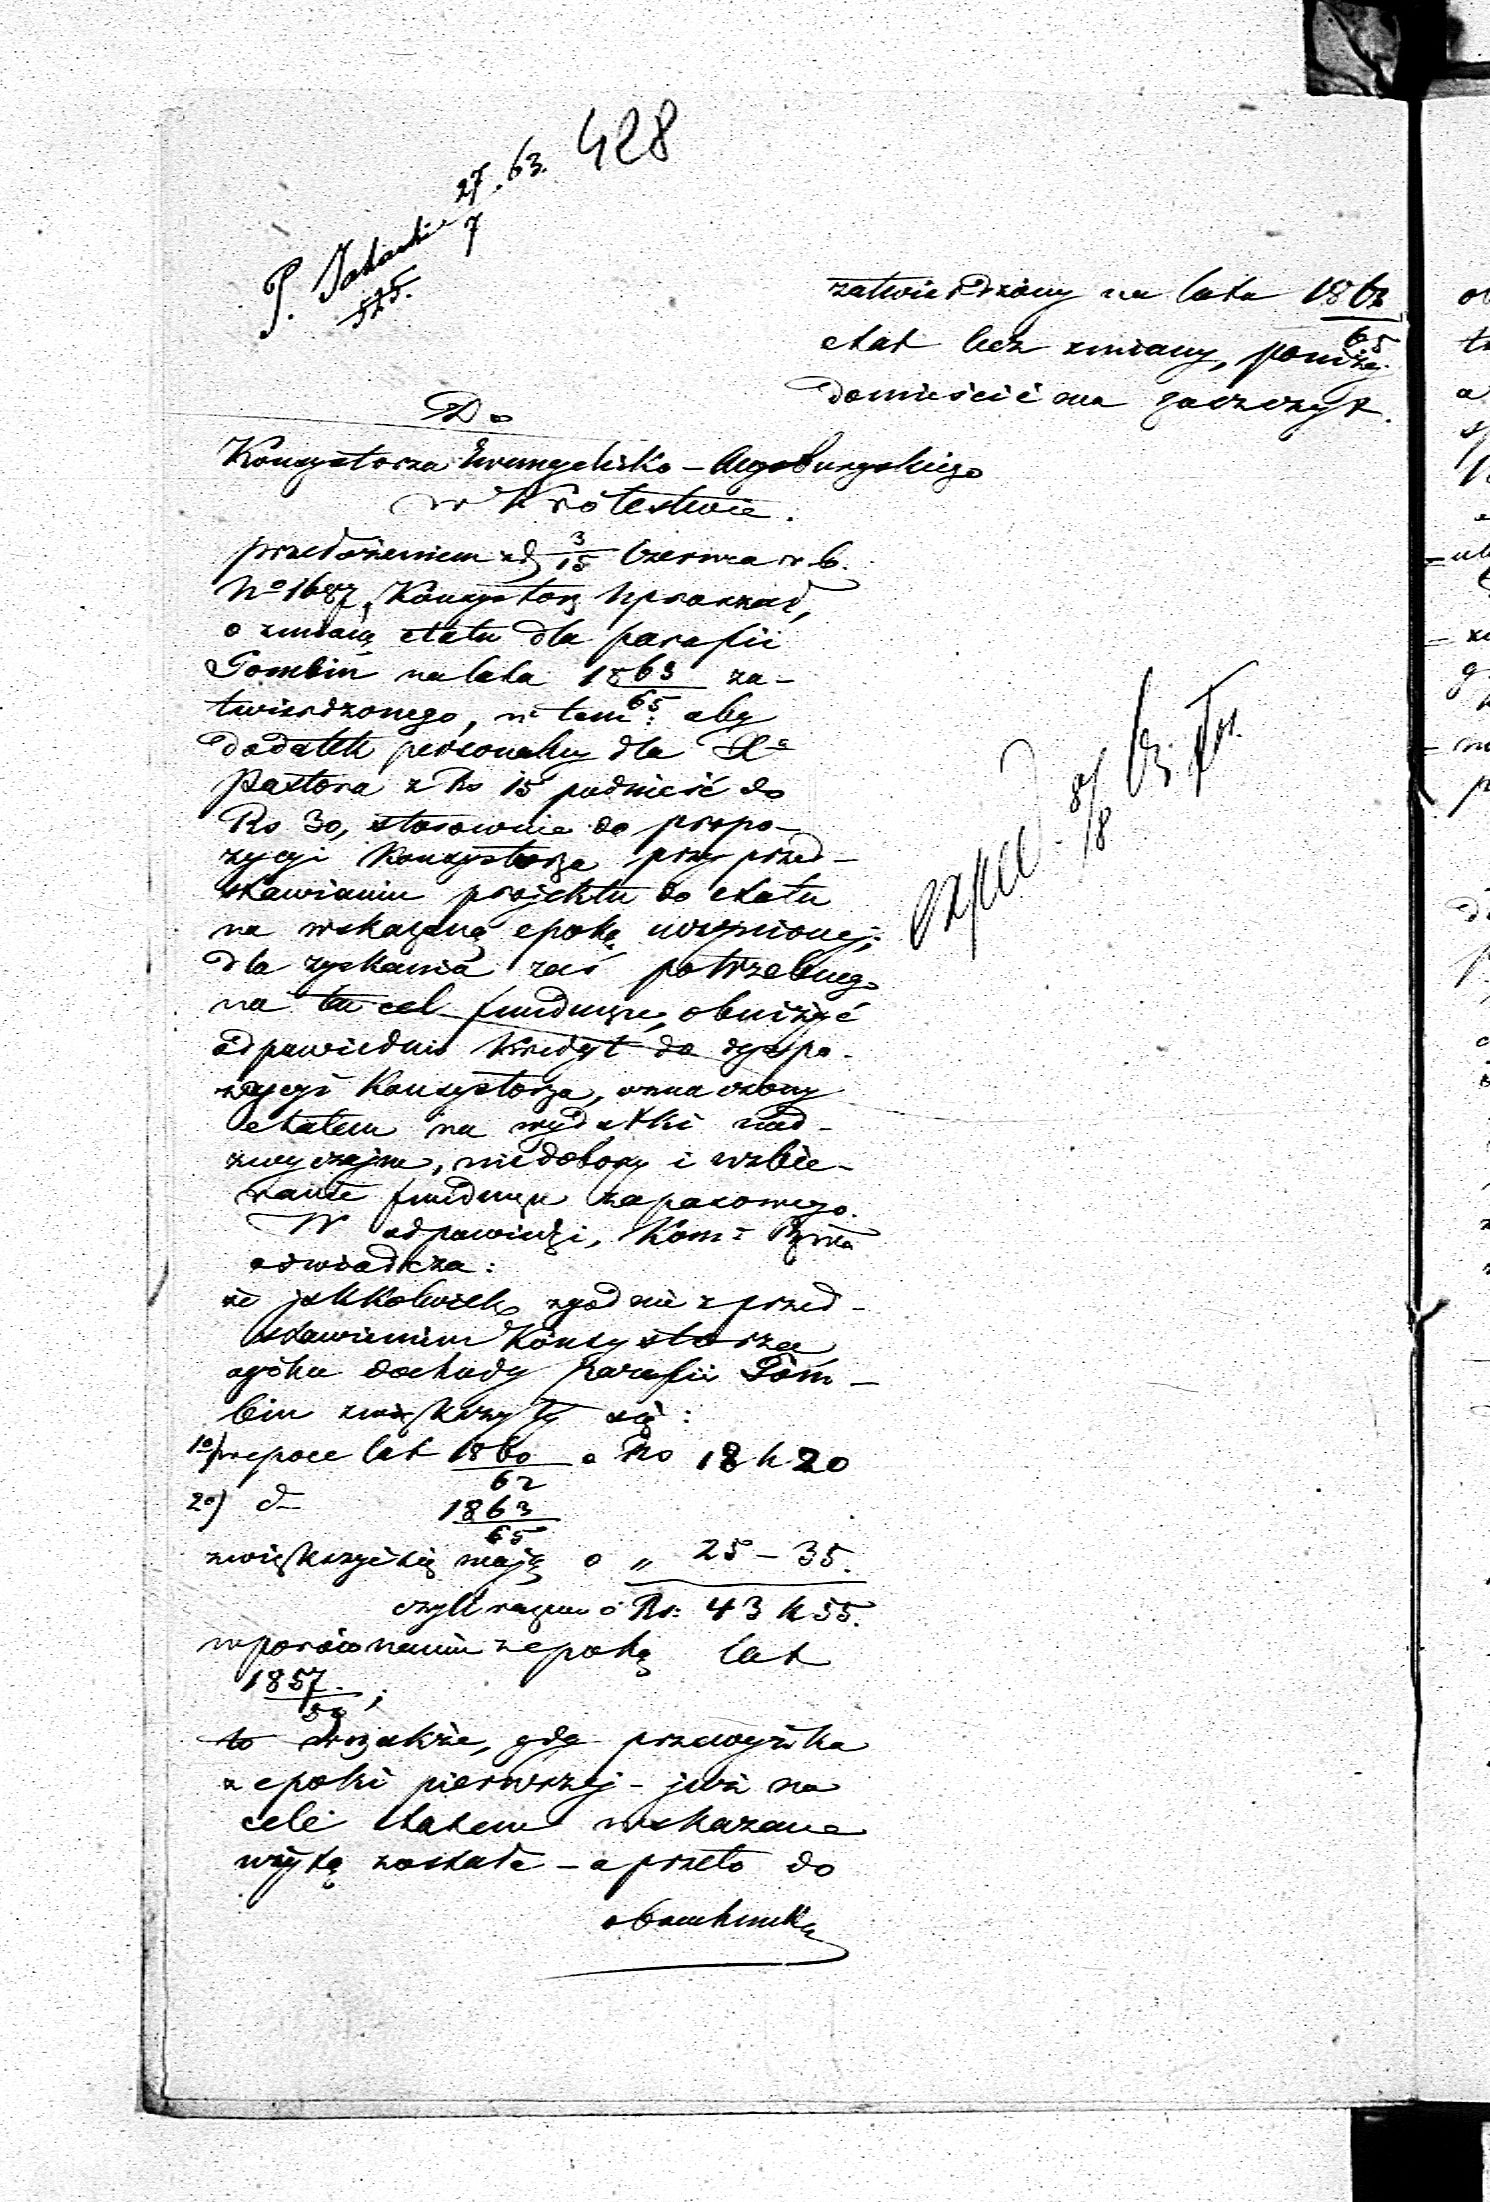 428
27/7 63.
P.
525.
zatwierdzony na lata 1863/65
etat bez zmiany, poniżej
domieścić ma zaszczyt.
Do
Konsystorza Ewangelicko-Augsburgskiego
w Królestwie.
przedłożeniem z d. 3/15 Czerwca r. b.
No 1687, Konsystorz upraszał,
o zmianę etatu dla parafii
Gombin na lata 1863/65 za-
twierdzonego, w tem: aby
dodatek personalny dla Xa
Pastora z Rs 15 podnieść do
Rs 30, stosownie do propo-
zycyi Konsystorza przy przed-
stawianiu projektu do etatu
na wskazaną epokę uczynionej;
dla zyskania zaś potrzebnego
na ten cel funduszu, obniżyć
odpowiednio kredyt do dyspo-
zycyi Konsystorza, oznaczony
etatem na wydatki nad-
zwyczajne, niedobory i uzbie-
ranie funduszu zapasowego.
W odpowiedzi, Kom: Rząwa
oświadcza:
że jakkolwiek zgodnie z przed-
stawieniem Konsystorza
ogółu dochody Parafii Gom-
bin zwiększyły się:
1o) w epoce lat 1860/62 o Rs 18 k 20
2o) d- 1863/65
zwiększyć się mają o „ 25 - 35.
czyli razem o Rs: 43 k 55.
w porównaniu z epoką lat
1857/59;
to wszakże, gdy przewyżka
z epoki pierwszej - już na
cele etatem wskazane
użytą została - a przeto do
obrachunku